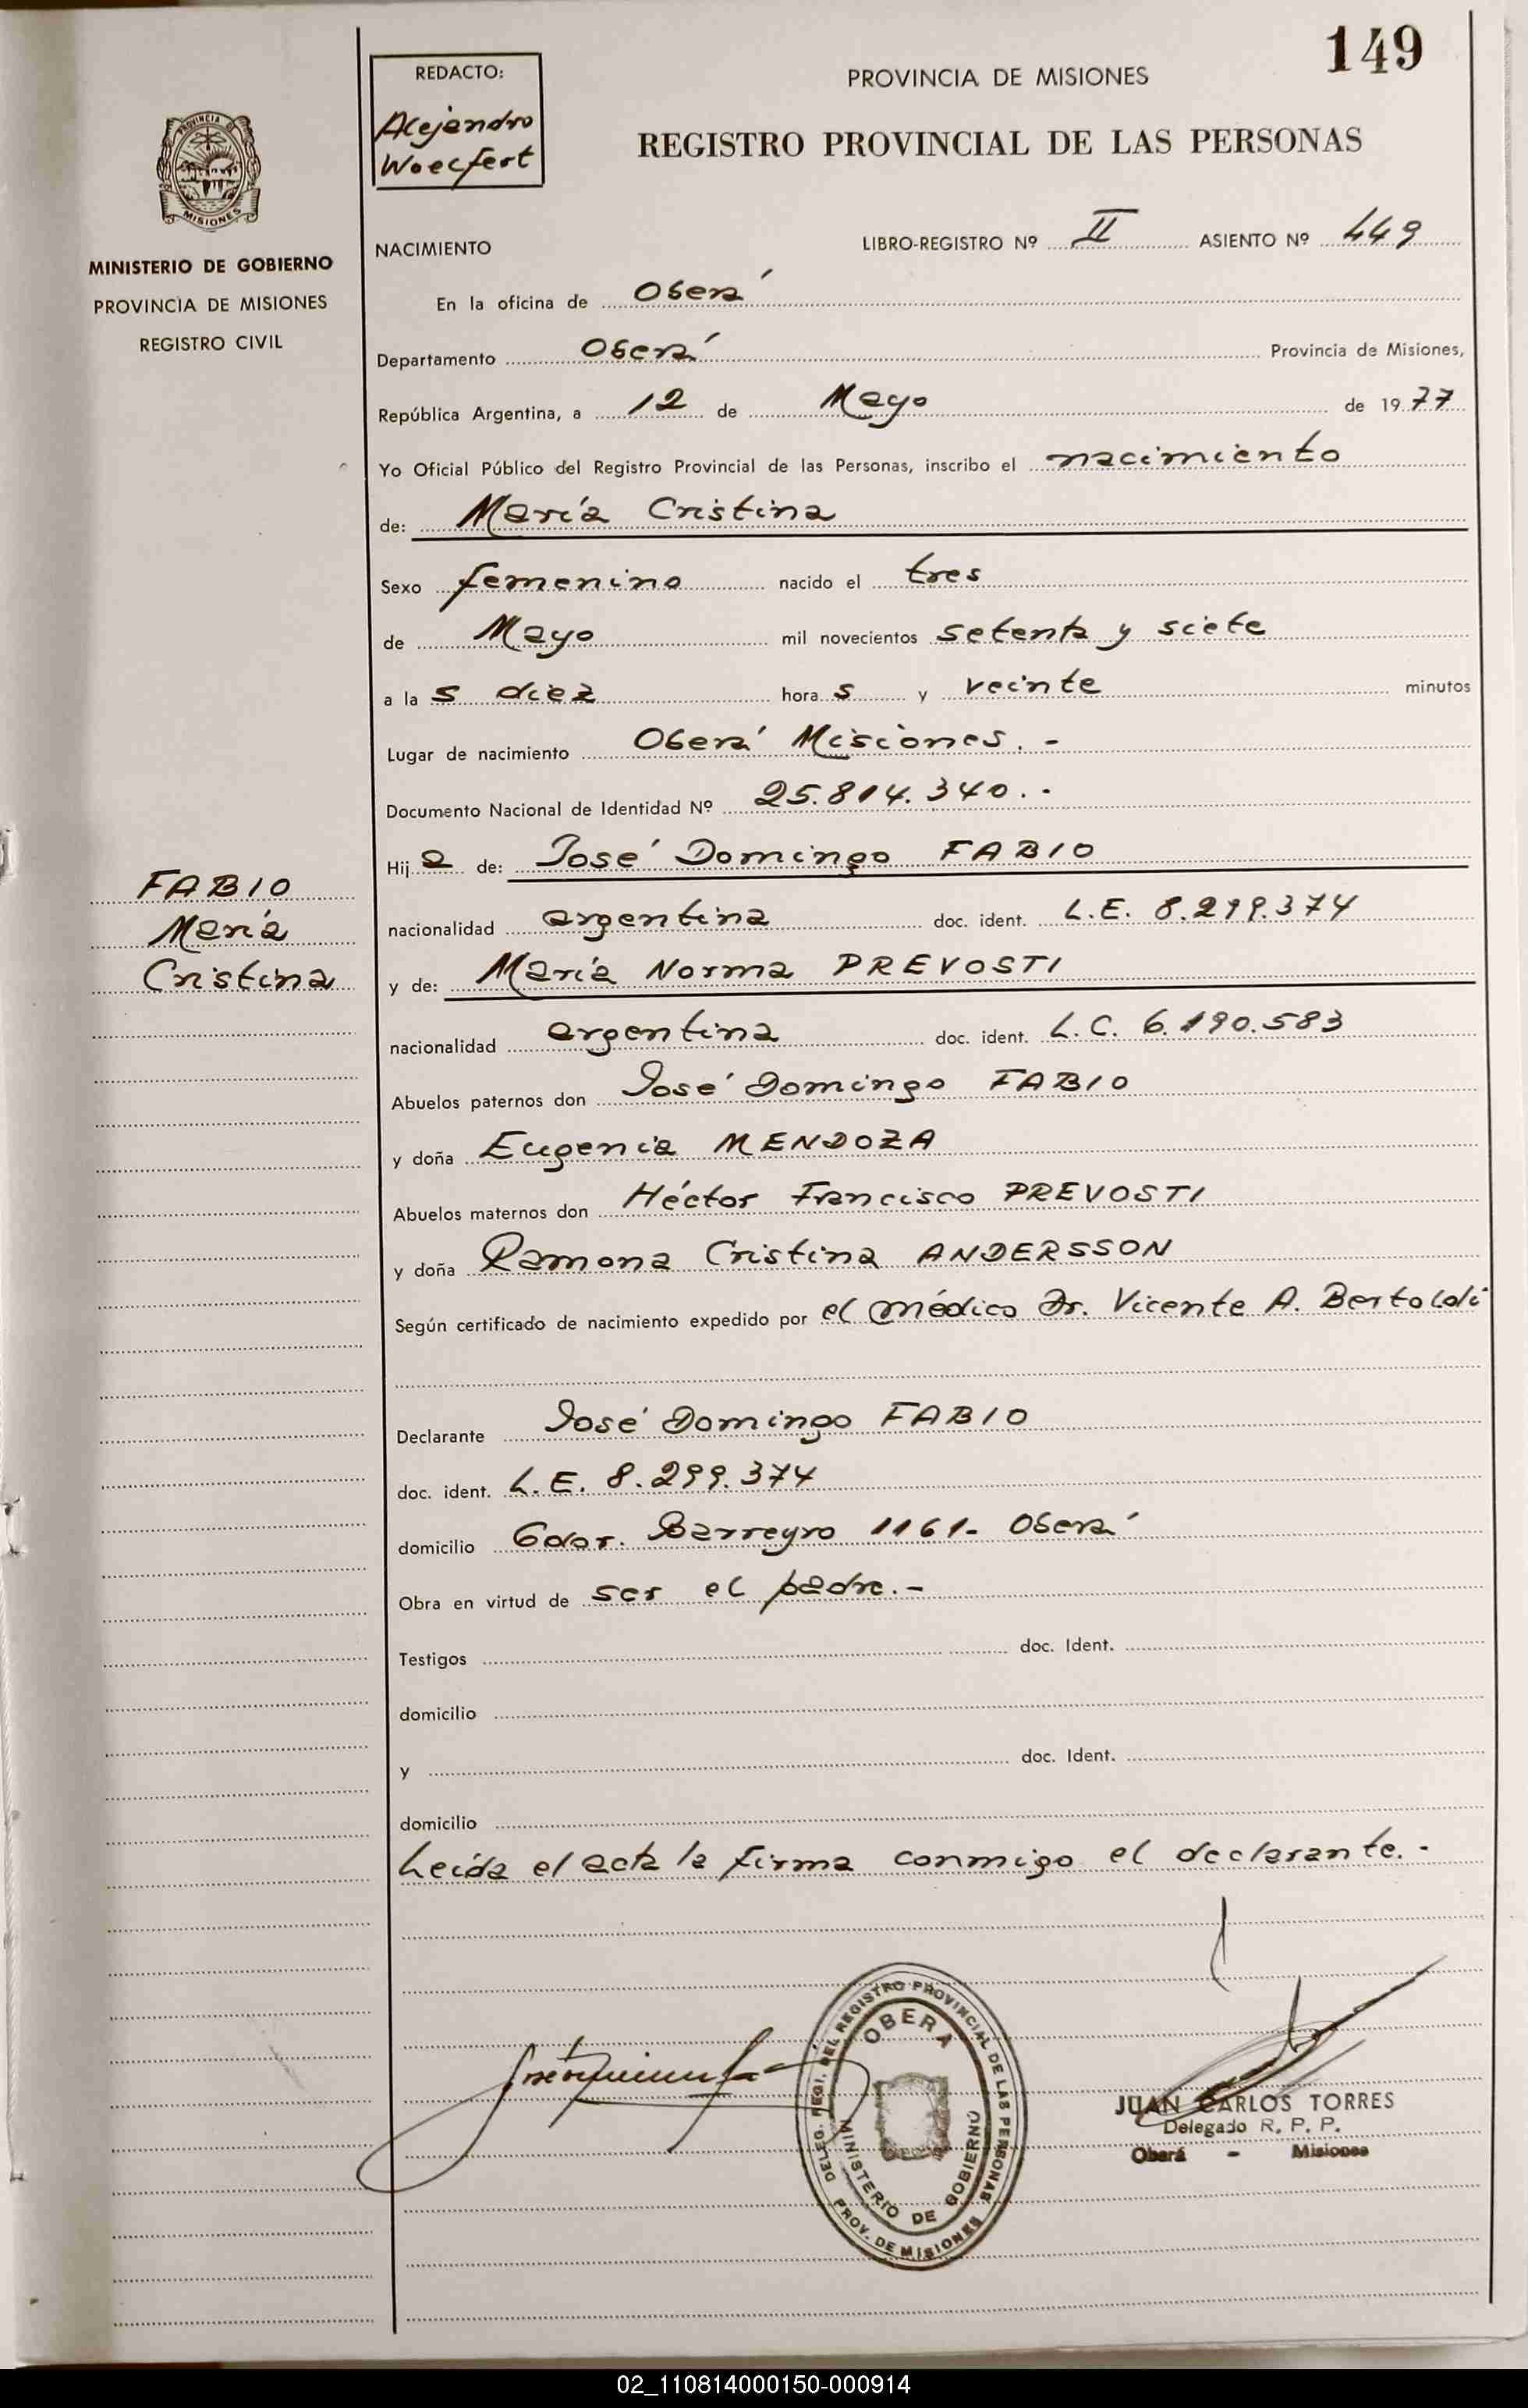 149
REDACTO:
Alejandro
Woelfert
PROVINCIA DE MISIONES
REGISTRO PROVINCIAL DE LAS PERSONAS
PROVINCIA DE
MISIONES
MINISTERIO DE GOBIERNO
PROVINCIA DE MISIONES
REGISTRO CIVIL
NACIMIENTO LIBRO-REGISTRO Nº II ASIENTO Nº 449
En la oficina de Oberá
Departamento Oberá Provincia de Misiones,
República Argentina, a 12 de Mayo de 1977
Yo Oficial Público del Registro Provincial de las Personas, inscribo el nacimiento
de: María Cristina
Sexo femenino nacido el tres
de Mayo mil novecientos setenta y siete
a la s diez hora s y veinte minutos
Lugar de nacimiento Oberá Misiones. -
Documento Nacional de Identidad Nº 25.814.340. -
Hij a de: José Domingo FABIO
FABIO
María
Cristina
nacionalidad argentina doc. ident. L.E. 8.299.374
y de: María Norma PREVOSTI
nacionalidad argentina doc. ident. L.C. 6.190.583
Abuelos paternos don José Domingo FABIO
y doña Eugenia MENDOZA
Abuelos maternos don Héctor Francisco PREVOSTI
y doña Ramona Cristina ANDERSSON
Según certificado de nacimiento expedido por el médico Dr. Vicente A. Bertoldi
Declarante José Domingo FABIO
doc. ident. L.E. 8.299.374
domicilio Gdor. Barreyro 1161- Oberá
Obra en virtud de ser el padre. -
Testigos doc. Ident.
domicilio
y doc. Ident.
domicilio
Leída el acta la firma conmigo el declarante. -
DELEG. REGI. DEL REGISTRO PROVINCIAL DE LAS PERSONAS
OBERA
MINISTERIO DE GOBIERNO
PROV. DE MISIONES
JUAN CARLOS TORRES
Delegado R. P. P.
Oberá - Misiones
02_110814000150-000914